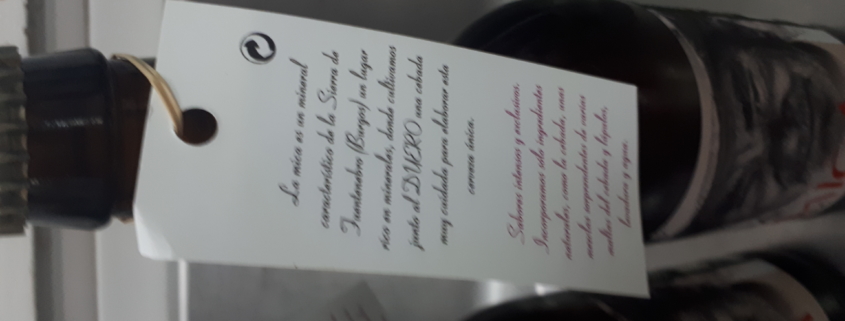 La mica es un mineral
característico de la Sierra de
Fuentenebro (Burgos) un lugar
rico en minerales, donde cultivamos
junto al DUERO una cebada
muy cuidada para elaborar esta
cerveza única.
Sabores intensos y exclusivos.
Incorporamos solo ingredientes
naturales, como la cebada, unas
mezclas sorprendentes de varias
maltas del cebada y lúpulos,
levadura y agua.